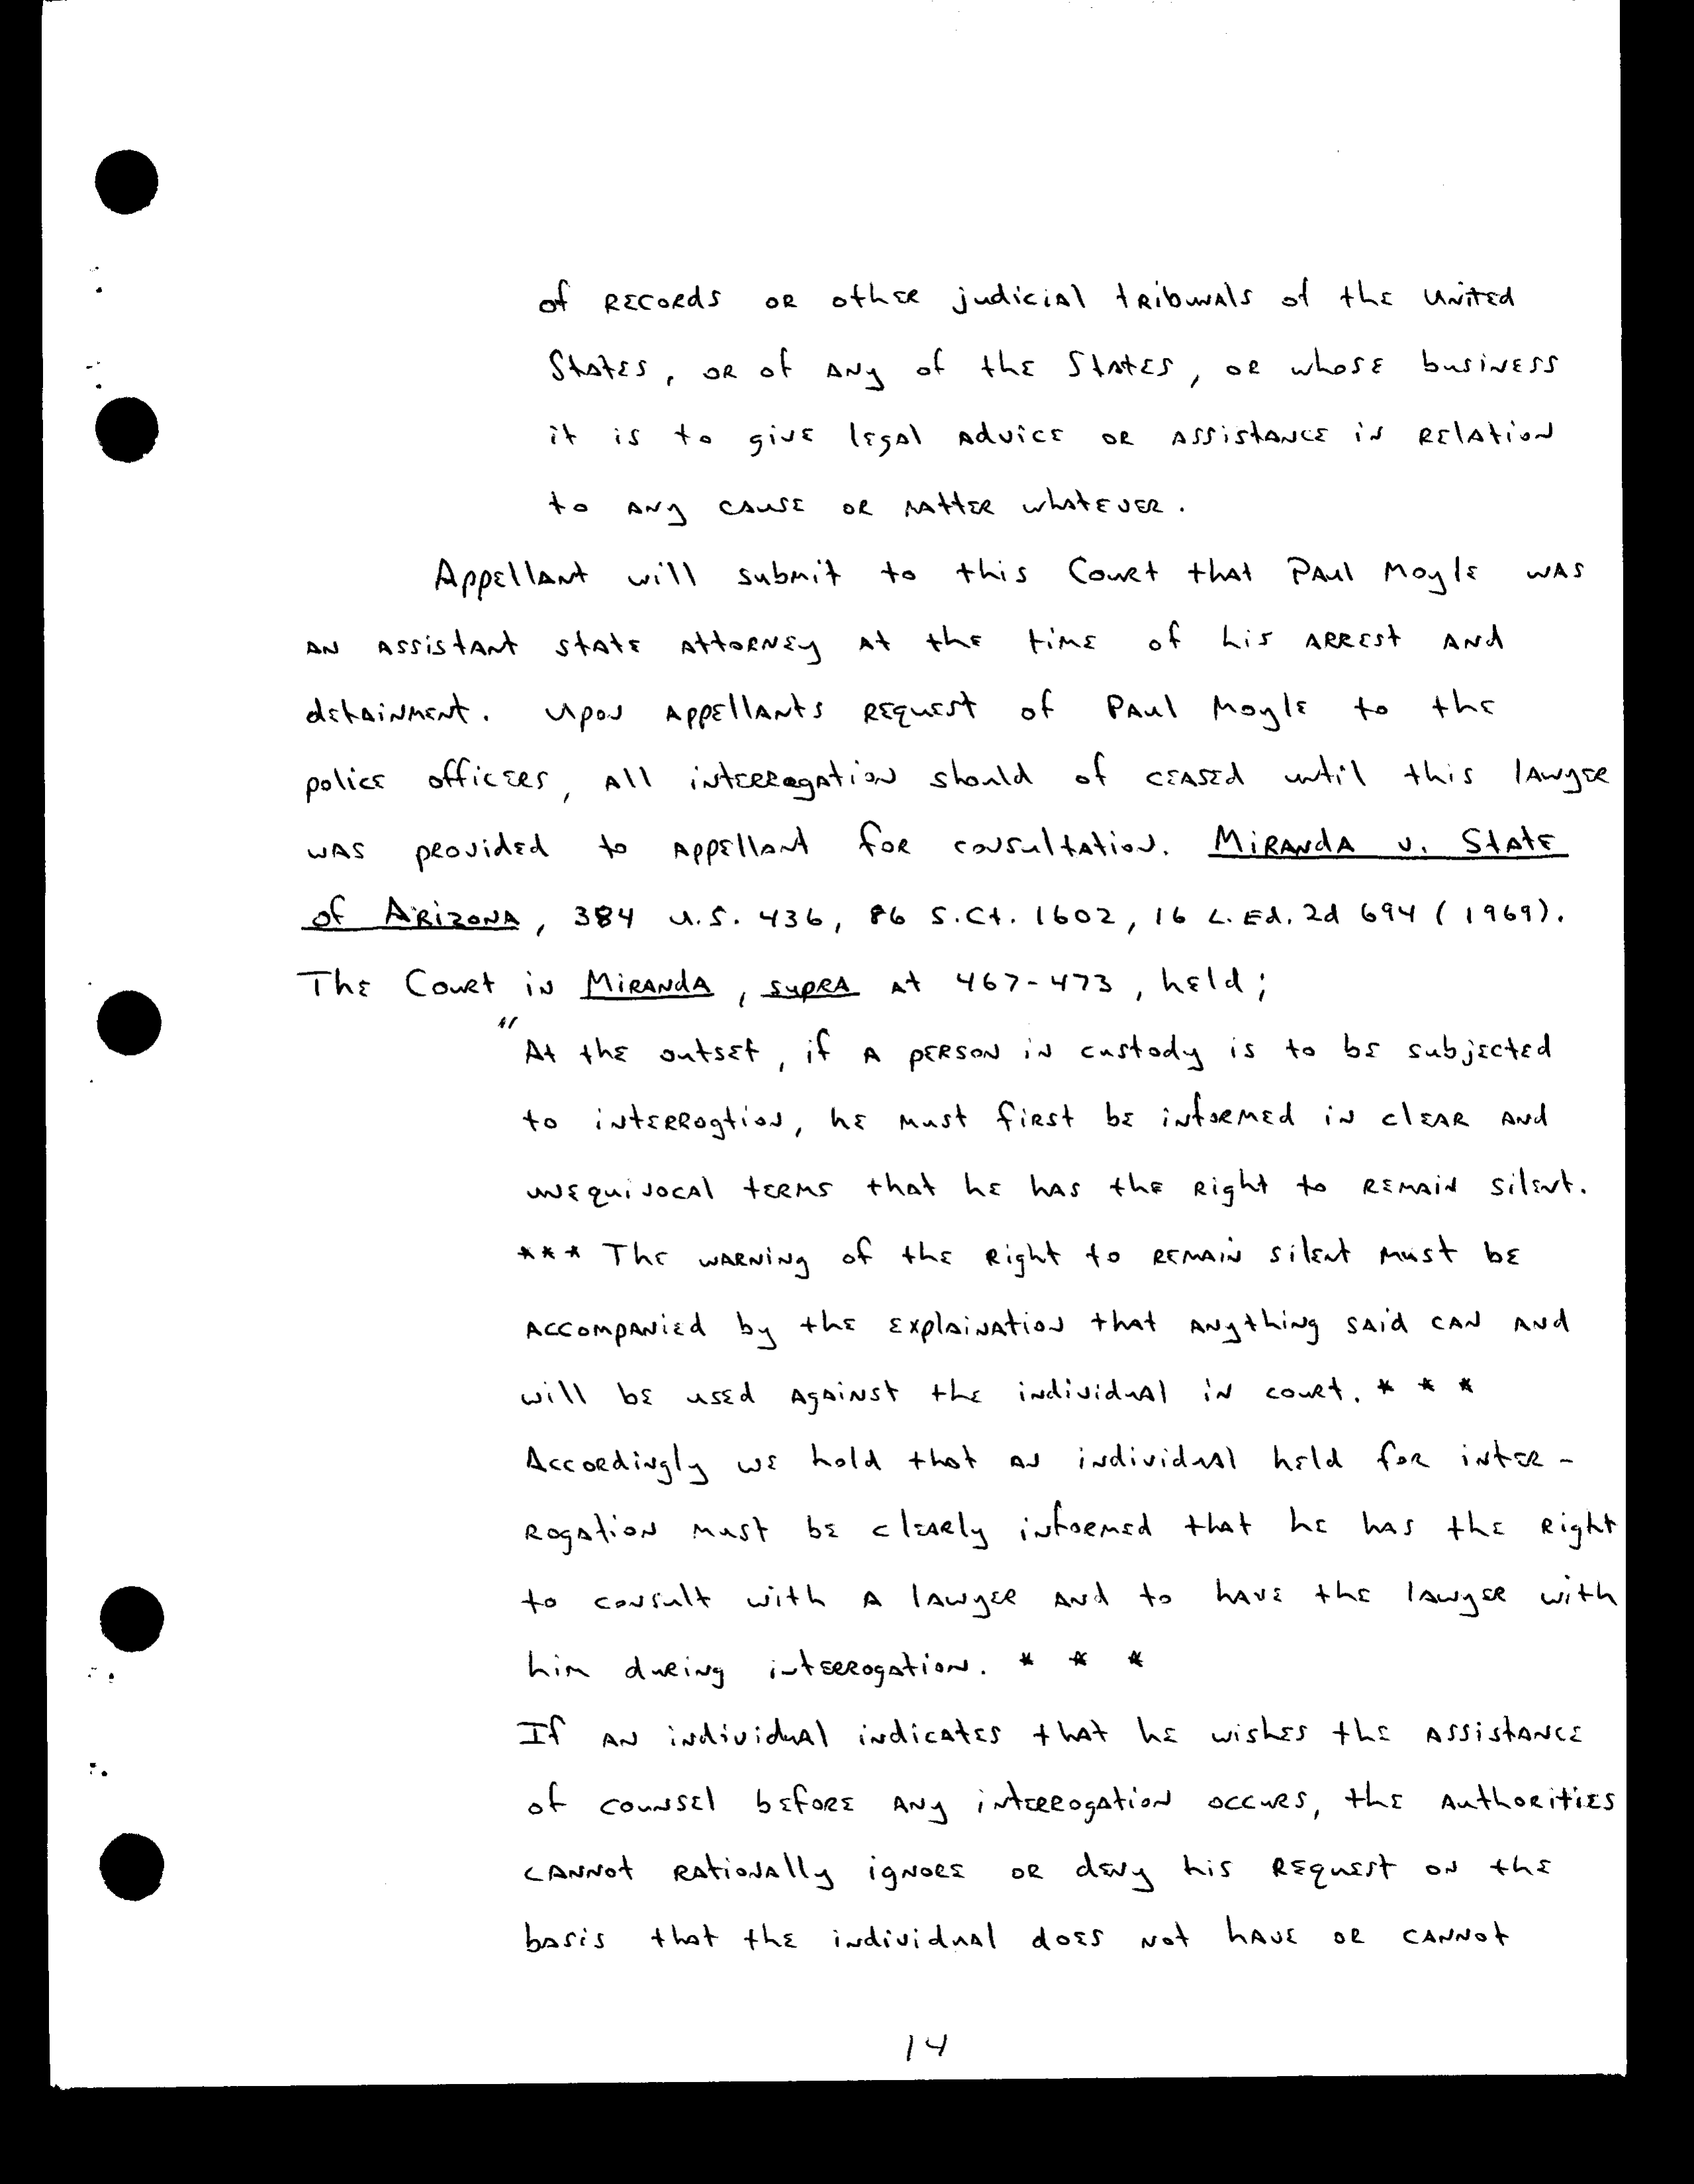 of records or other judicial tribunals of the United
States, or of any of the States, or whose business
it is to give legal advice or assistance in relation
to any cause or matter whatever.
Appellant will submit to this Court that Paul Moyle was
an assistant state attorney at the time of his arrest and
detainment. Upon appellants request of Paul Moyle to the
police officers, all interrogation should of ceased until this lawyer
was provided to appellant for consultation. Miranda v. State
of Arizona, 384 U.S. 436, 86 S.Ct. 1602, 16 L.Ed.2d 694 (1969).
The Court in Miranda, supra at 467-473, held;
"At the outset, if a person in custody is to be subjected
to interrogtion, he must first be informed in clear and
unequivocal terms that he has the right to remain silent.
*** The warning of the right to remain silent must be
accompanied by the explaination that anything said can and
will be used against the individual in court. * * *
Accordingly we hold that an individual held for inter-
rogation must be clearly informed that he has the right
to consult with a lawyer and to have the lawyer with
him during interrogation. * * *
If an individual indicates that he wishes the assistance
of counsel before any interrogation occurs, the authorities
cannot rationally ignore or deny his request on the
basis that the individual does not have or cannot
14